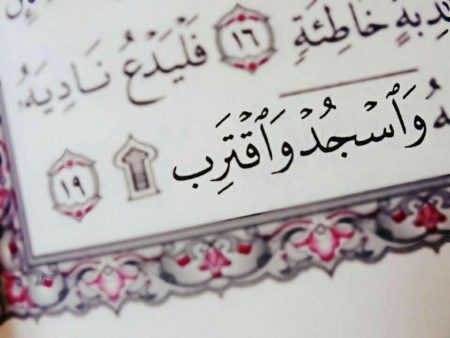 خَاطِئَةٍ ١٦ فَلْيَدْعُ نَادِيَهُ
وَٱسْجُدْ وَٱقْتَرِب ١٩